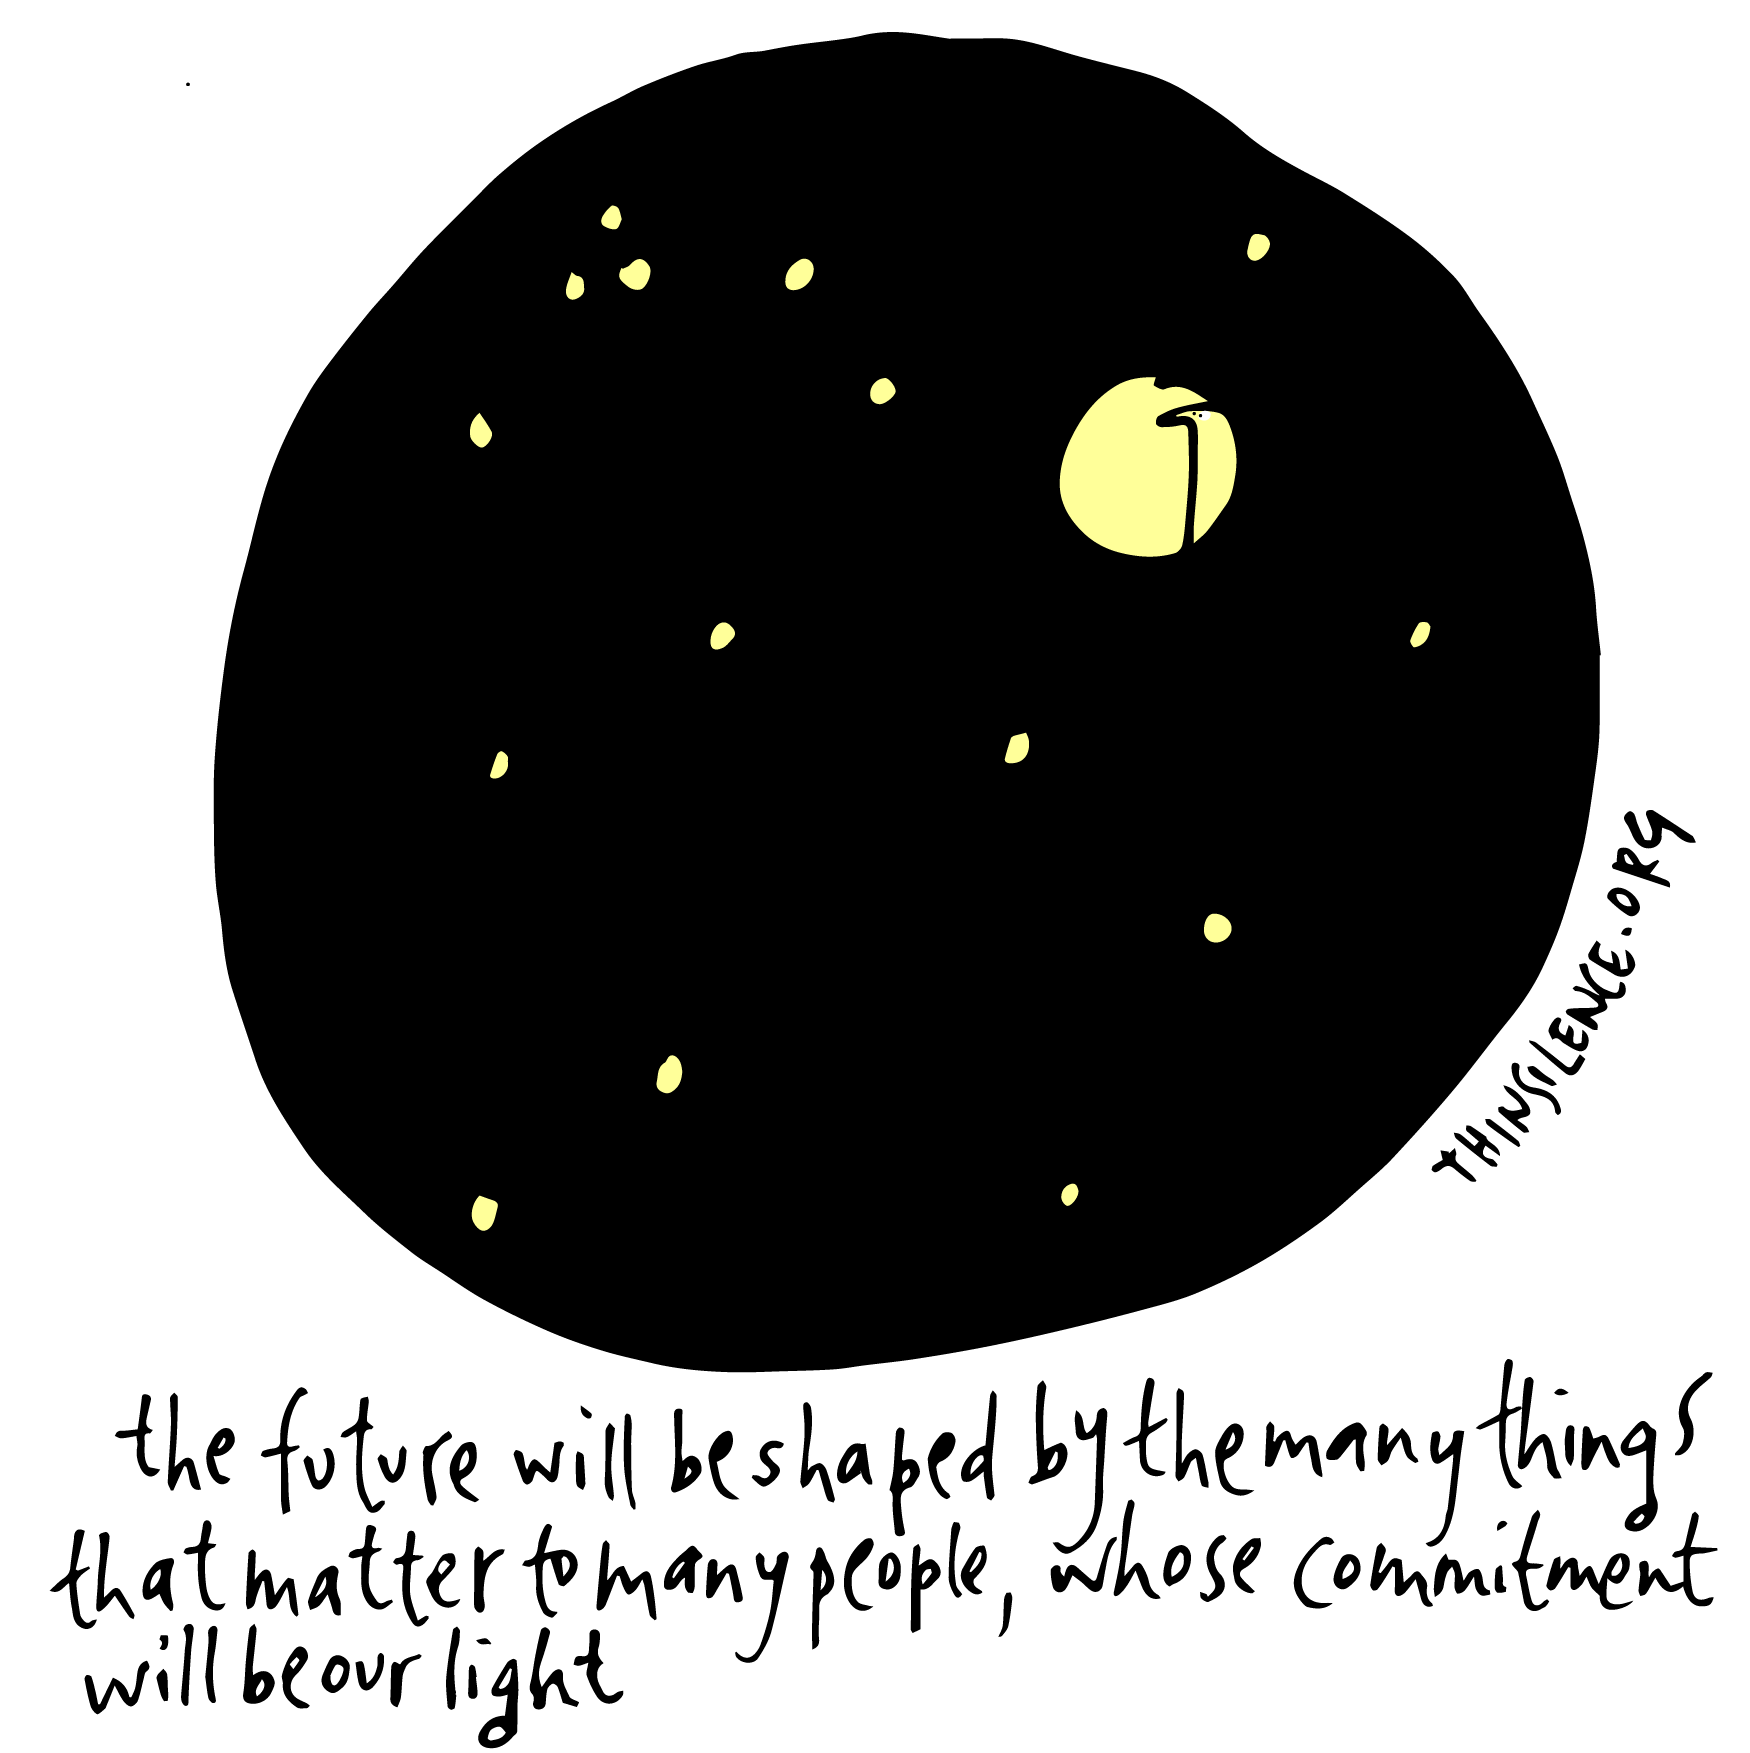 THINSILENCE.ORG
the future will be shaped by the many things
that matter to many people, whose commitment
will be our light